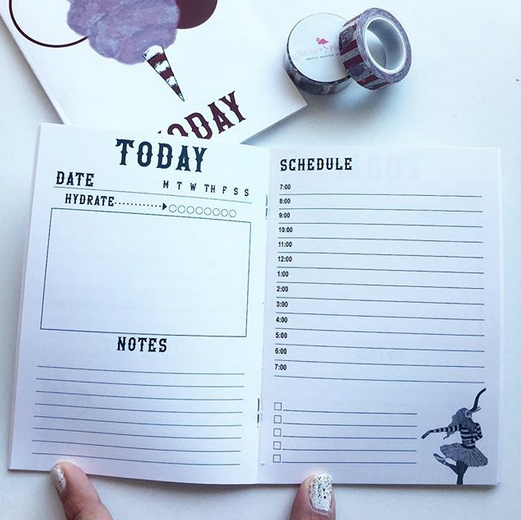 TODAY
TODAY
DATE
M T W TH F S S
HYDRATE
NOTES
SCHEDULE
7:00
8:00
9:00
10:00
11:00
12:00
1:00
2:00
3:00
4:00
5:00
6:00
7:00